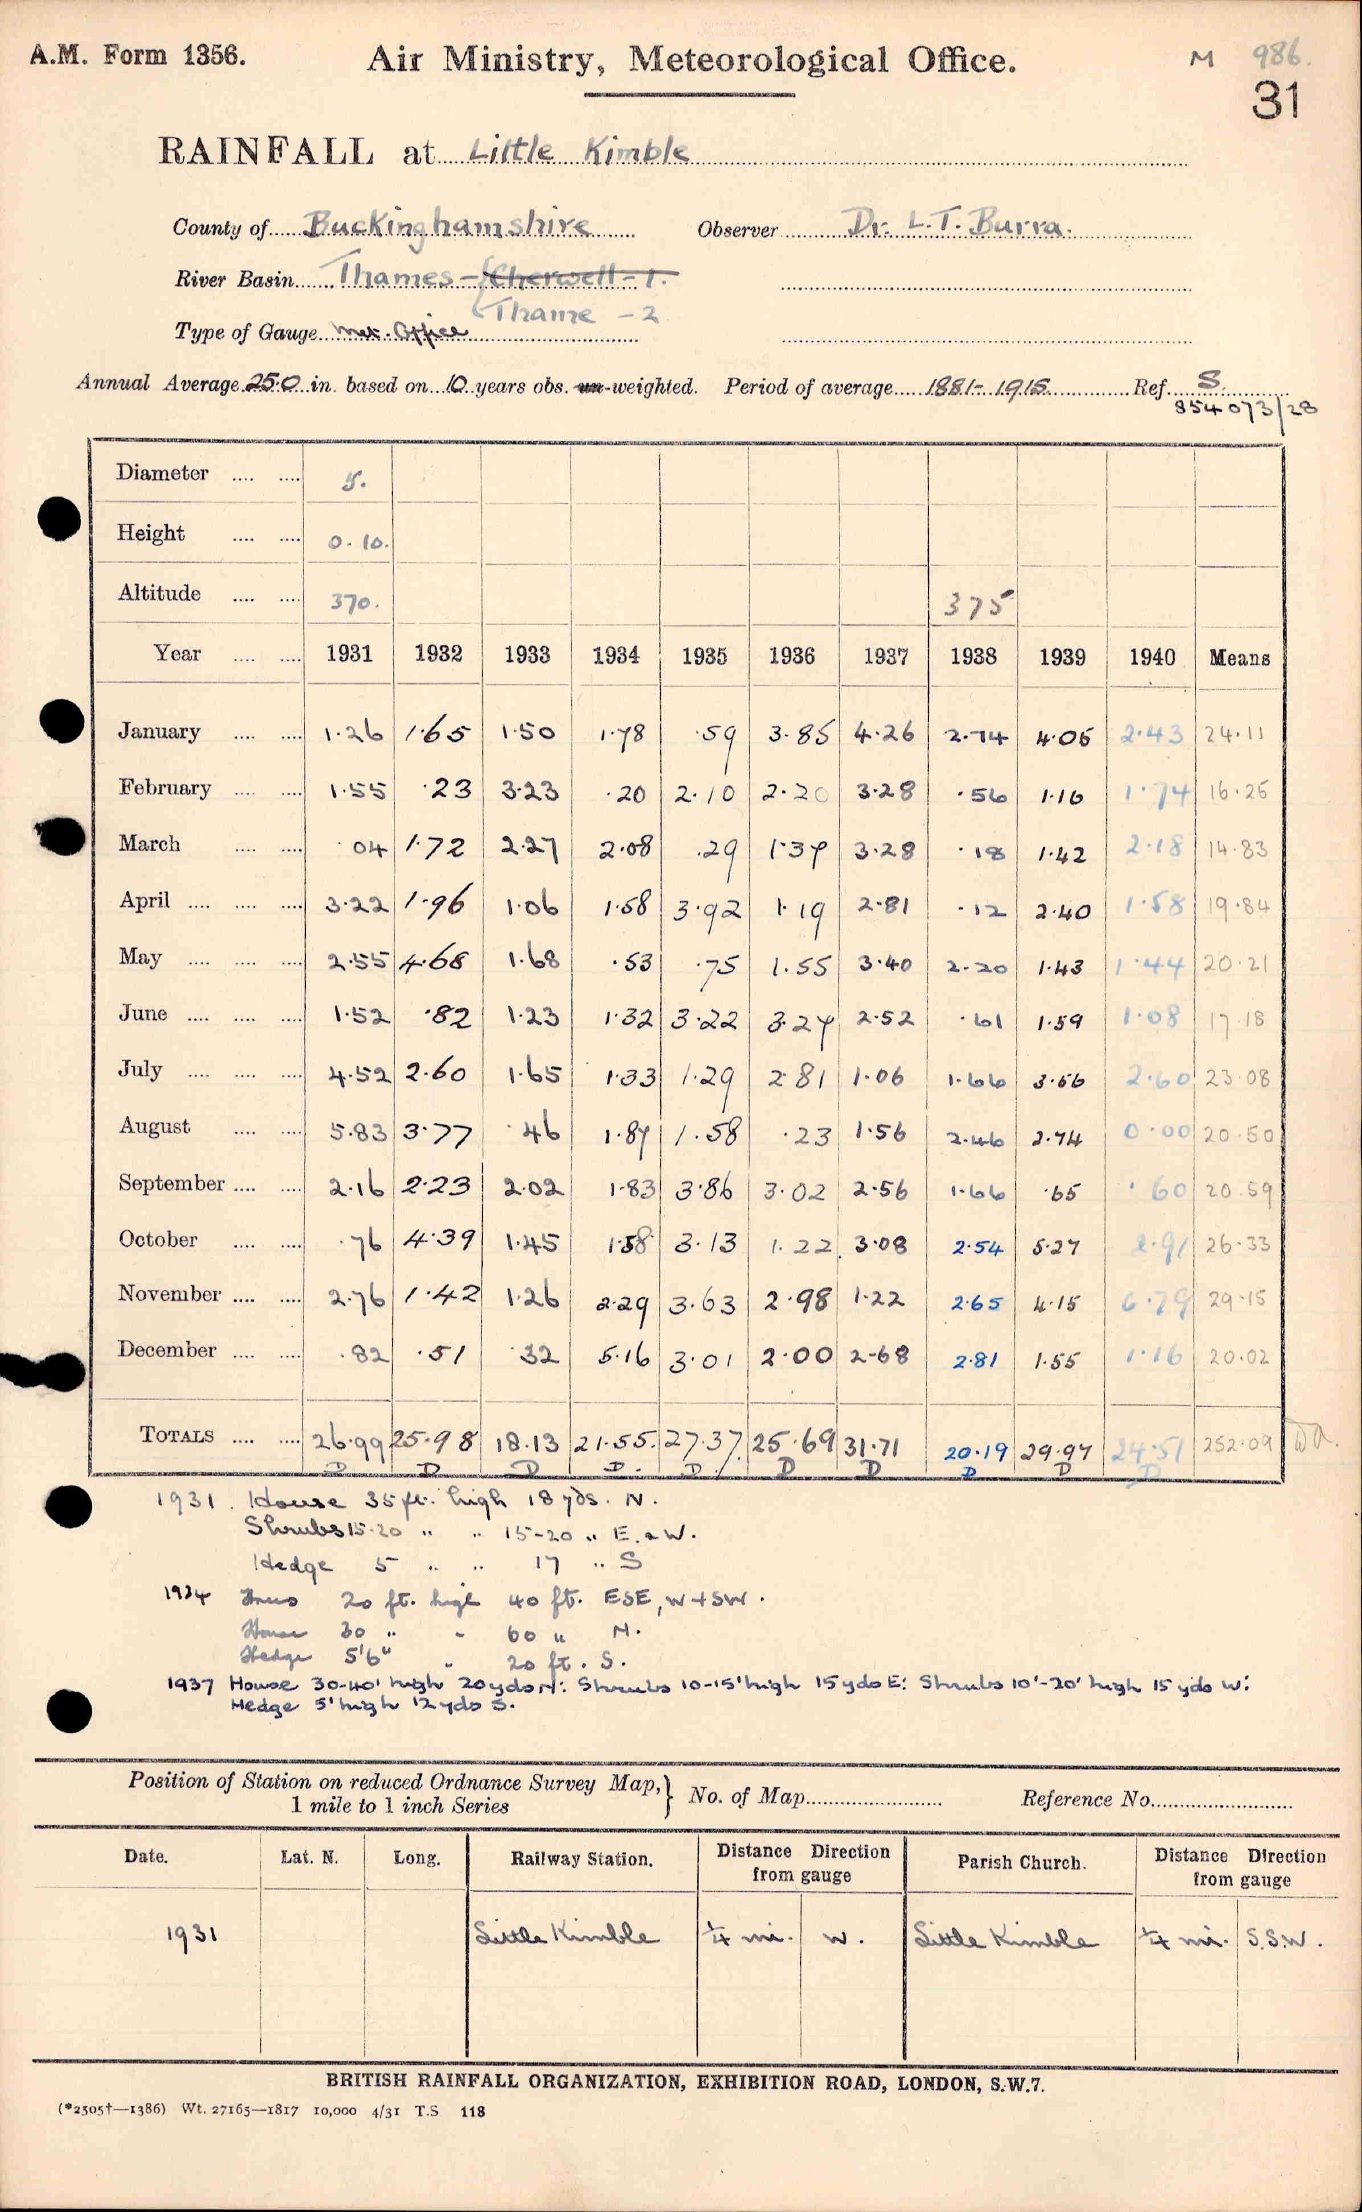 A.M. Form 1356.
Air Ministry, Meteorological Office.
M 986.
31
RAINFALL at Little Kimble
County of Buckinghamshire Observer Dr. L.T. Burra.
River Basin Thames - Cherwell - 1.
Thame - 2
Type of Gauge Met. Office
Annual Average 25.0 in. based on 10 years obs. un-weighted. Period of average 1881-1915 Ref. S.
854073/28
Diameter .... .... 5.
Height .... .... 0.10.
Altitude .... .... 370. 375
Year .... .... 1931 1932 1933 1934 1935 1936 1937 1938 1939 1940 Means
January .... .... 1.26 1.65 1.50 1.78 .59 3.85 4.26 2.74 4.05 2.43 24.11
February .... .... 1.55 .23 3.23 .20 2.10 2.20 3.28 .56 1.16 1.74 16.25
March .... .... .04 1.72 2.27 2.08 .29 1.37 3.28 .18 1.42 2.18 14.83
April .... .... .... 3.22 1.96 1.06 1.58 3.92 1.19 2.81 .12 2.40 1.58 19.84
May .... .... .... 2.55 4.68 1.68 .53 .75 1.55 3.40 2.20 1.43 1.44 20.21
June .... .... .... 1.52 .82 1.23 1.32 3.22 3.27 2.52 .61 1.59 1.08 17.18
July .... .... .... 4.52 2.60 1.65 1.33 1.29 2.81 1.06 1.66 3.56 2.60 23.08
August .... .... 5.83 3.77 .46 1.87 1.58 .23 1.56 2.46 2.74 0.00 20.50
September .... .... 2.16 2.23 2.02 1.83 3.86 3.02 2.56 1.66 .65 .60 20.59
October .... .... .76 4.39 1.45 1.58 3.13 1.22 3.08 2.54 5.27 2.91 26.33
November .... .... 2.76 1.42 1.26 2.29 3.63 2.98 1.22 2.65 4.15 6.79 29.15
December .... .... .82 .51 .32 5.16 3.01 2.00 2.68 2.81 1.55 1.16 20.02
TOTALS .... .... 26.99 25.98 18.13 21.55. 27.37. 25.69 31.71 20.19 29.97 24.51 252.09
D D D D. D. D D D D D
1931. House 35 ft. high 18 yds. N.
Shrubs 15-20 " " 15-20 " E. & W.
Hedge 5 " " 17 " S
1934 Trees 20 ft. high 40 ft. ESE, W + SW.
House 30 " " 60 " N.
Hedge 5'6" " 20 ft. S.
1937 House 30-40' high 20yds N: Shrubs 10-15' high 15yds E: Shrubs 10'-20' high 15 yds W:
Hedge 5' high 12yds S.
Position of Station on reduced Ordnance Survey Map, } No. of Map Reference No.
1 mile to 1 inch Series
Date. Lat. N. Long. Railway Station. Distance Direction from gauge Parish Church. Distance Direction from gauge
1931 Little Kimble ¼ mi. W. Little Kimble ¼ mi. S.S.W.
BRITISH RAINFALL ORGANIZATION, EXHIBITION ROAD, LONDON, S.W.7.
(*2505†—1386) Wt. 27165—1817 10,000 4/31 T.S 118